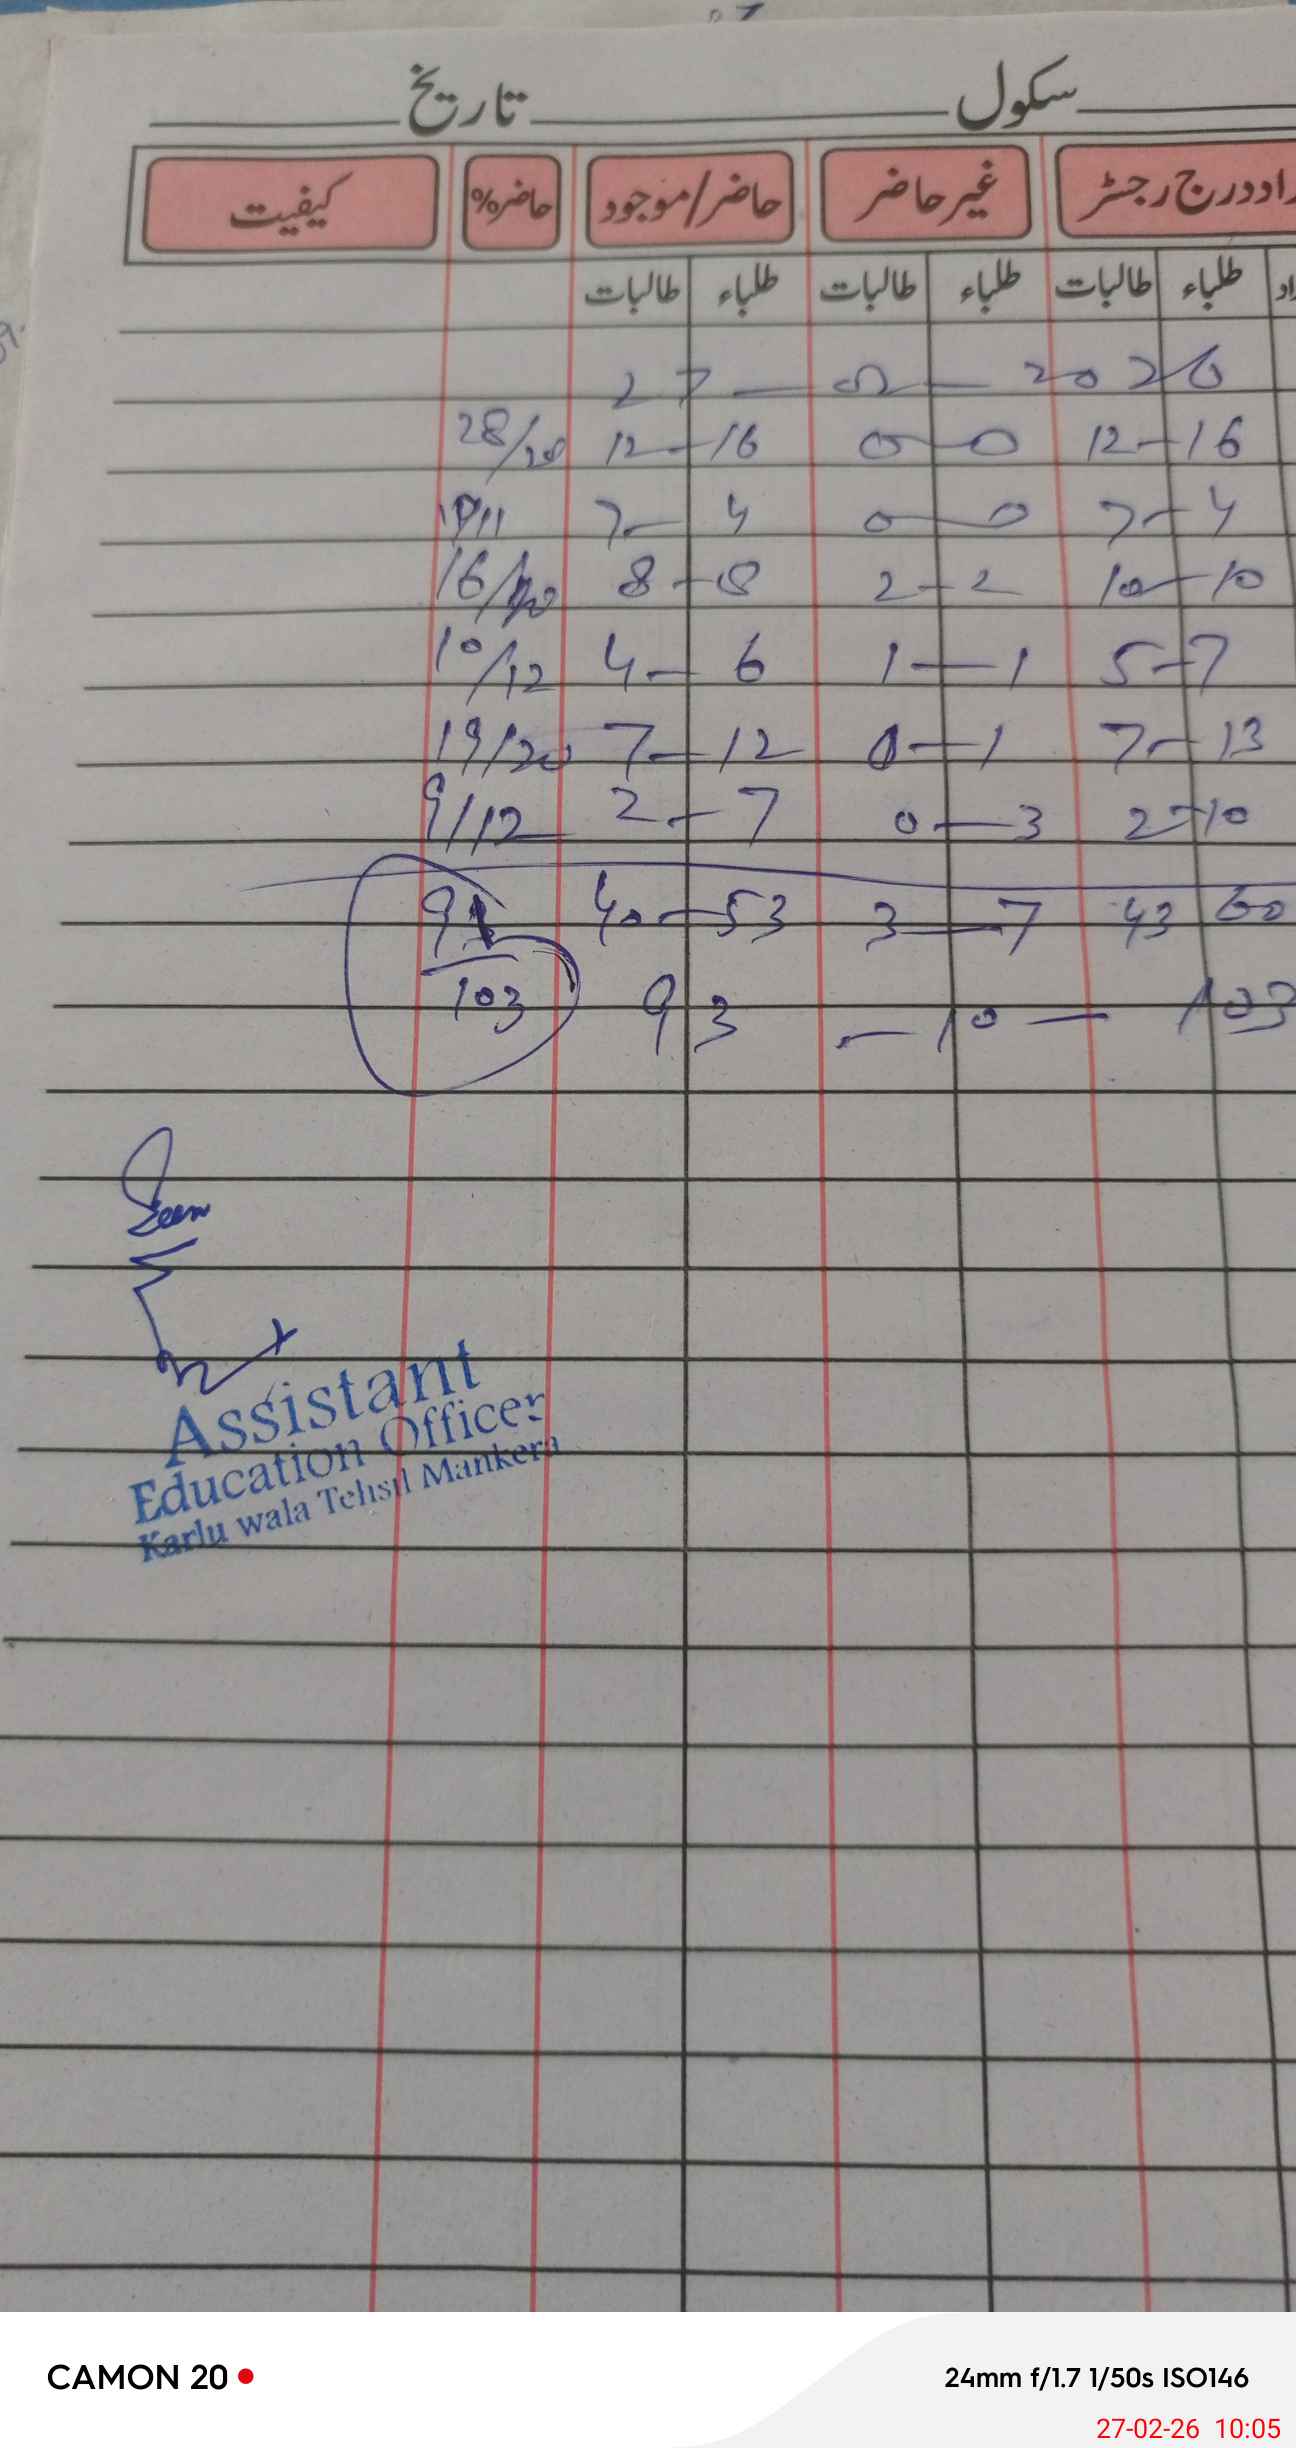 سکول تاریخ
راد درج رجسٹر غیر حاضر حاضر/موجود حاضر% کیفیت
راد طلباء طالبات طلباء طالبات طلباء طالبات
27 — 02 — 2026
28/28 12 — 16 0 — 0 12 — 16
11/11 7 — 4 0 — 0 7 — 4
16/20 8 — 8 2 — 2 10 — 10
10/12 4 — 6 1 — 1 5 — 7
19/20 7 — 12 0 — 1 7 — 13
9/12 2 — 7 0 — 3 2 — 10
40 — 53 3 — 7 43 60
103 93 — 10 — 103
Seen
Assistant
Education Officer
Karlu wala Tehsil Mankera
CAMON 20
24mm f/1.7 1/50s ISO146
27-02-26 10:05